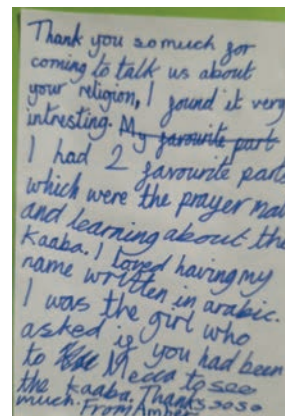 Thank you so much for
coming to talk us about
your religion, I found it very
intresting. My favourite part
I had 2 favourite parts
which were the prayer mat
and learning about the
Kaaba. I loved having my
name written in arabic.
I was the girl who
asked if you had been
to Mecca to see
the Kaaba. Thanks so so
much. From Amber